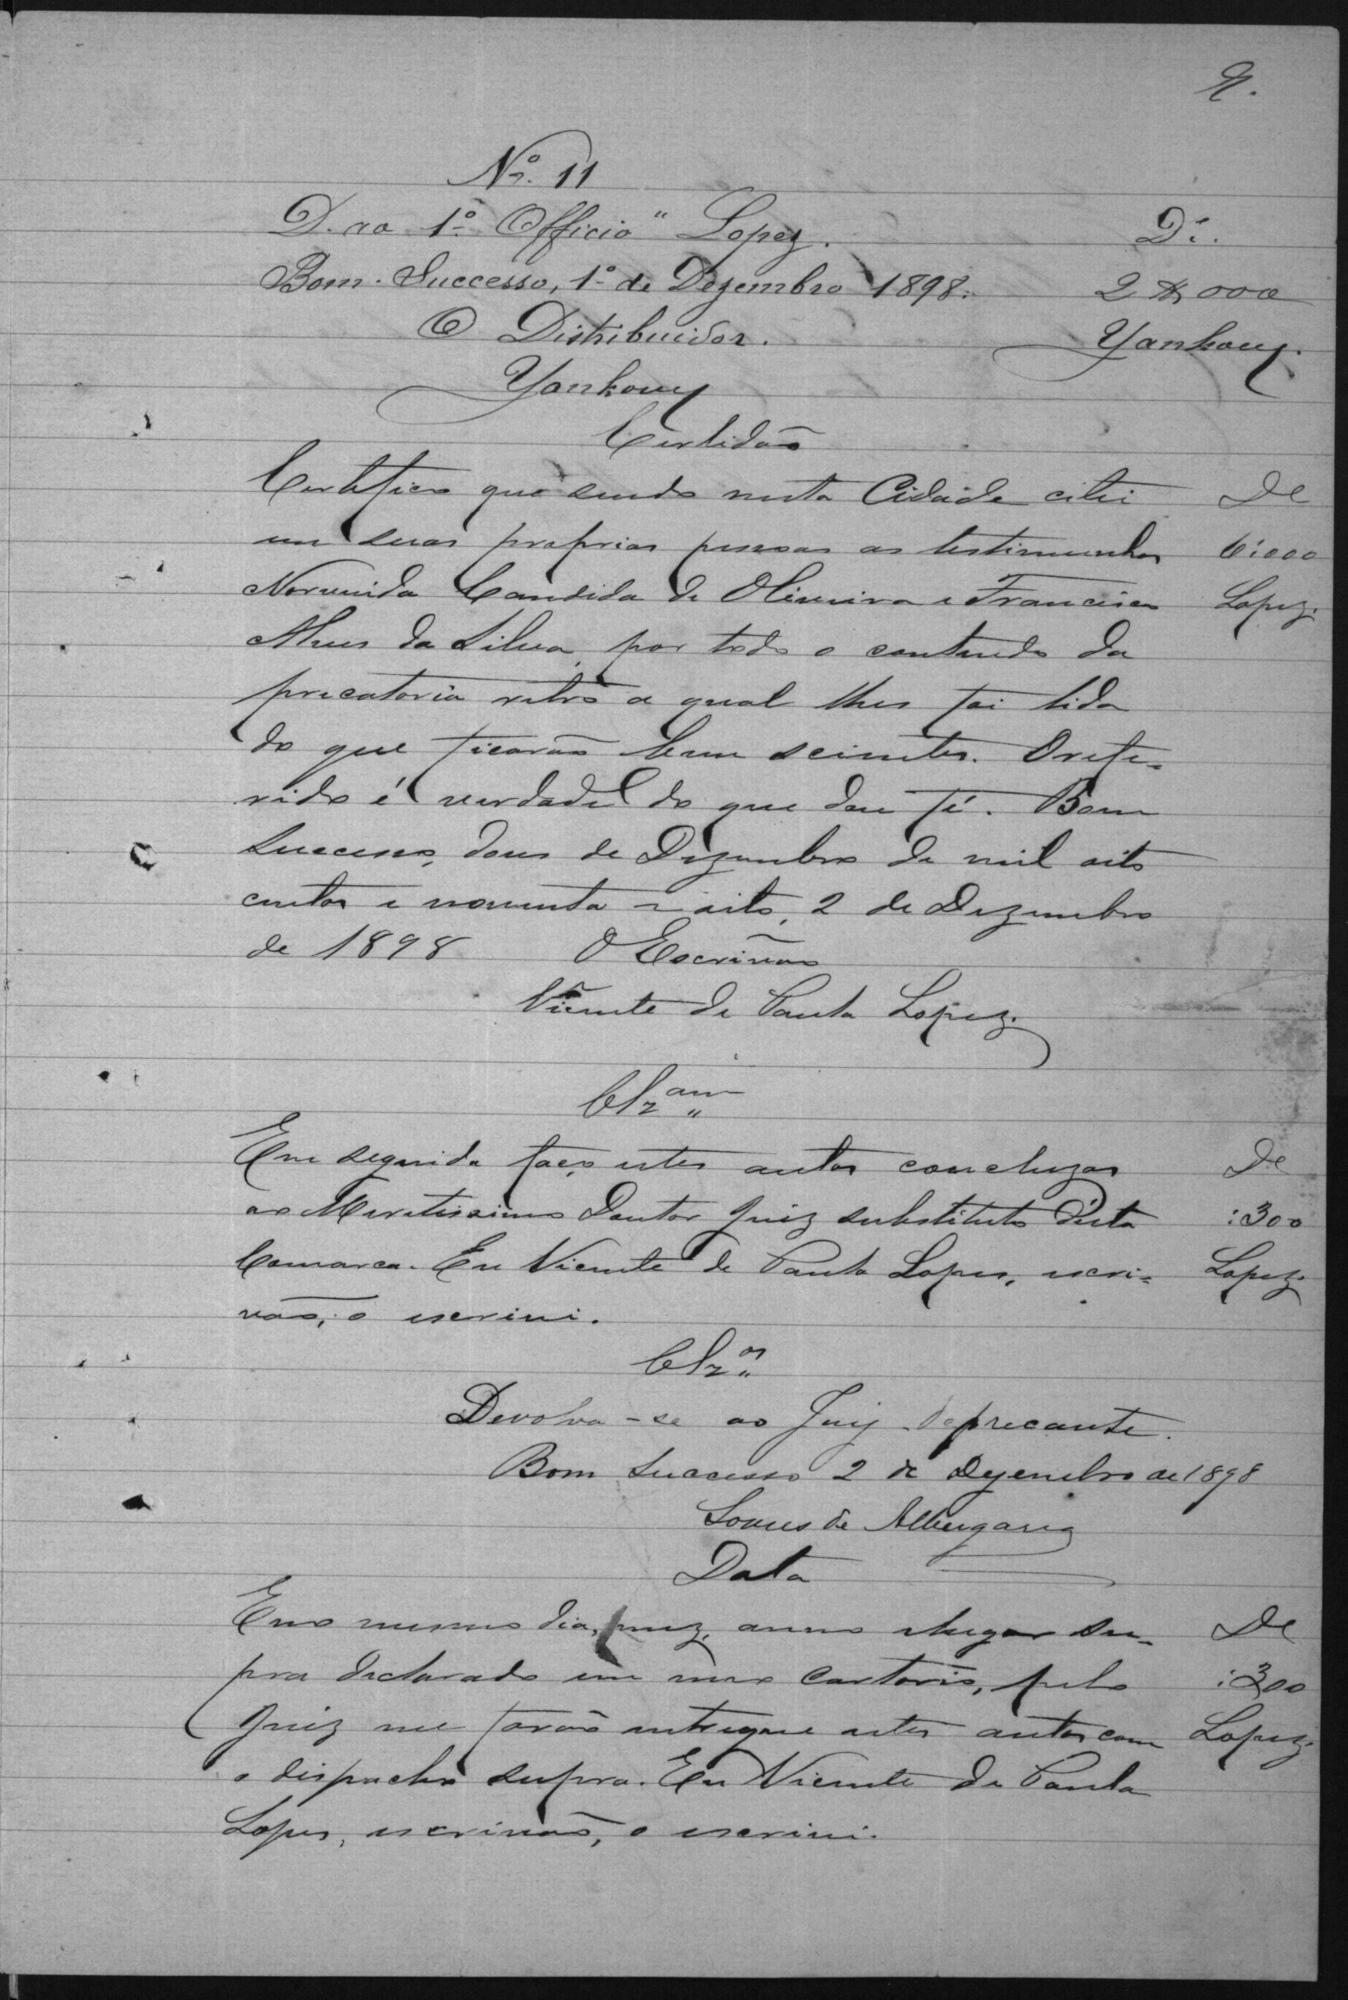 Nº. 11
D. ao 1º Officio " Lopez. Di.
Bom-Successo, 1º de Dezembro 1898. 2$000
O Distribuidor. Yankouy.
Yankouy
Certidão
Certifico que sendo nesta Cidade citei De
em suas proprias pessoas as testimunhas 6:000
Candida de Oliveira e Francisco Lopez.
Alves da Silva, por todo o contendo da
precatoria retro a qual lhes foi lida
do que ficarão bem scientes. O refe-
rido é verdade do que dou fé. Bom
Successo, dous de Dezembro de mil oito
centos e noventa e oito, 2 de Dezembro
de 1898 O Escrivão
Vicente de Paula Lopez.
Clzam
Em seguida faço estes autos concluzos De
ao Meretissimo Doutor Juiz substituto d'esta :300
Comarca. Eu Vicente de Paula Lopes, escri- Lopez.
vão, o escrivi.
Clzos
Devolva-se ao Juiz deprecante.
Bom Successo 2 de Dezembro de 1898
Soares de Albergaria
Data
E no mesmo dia, mez, anno e lugar su- De
pra declarado em meo cartorio, pelo :300
Juiz me forão entregue estes autos com Lopez.
o dispacho supra. Eu Vicente de Paula
Lopes, escrivão, o escrivi.